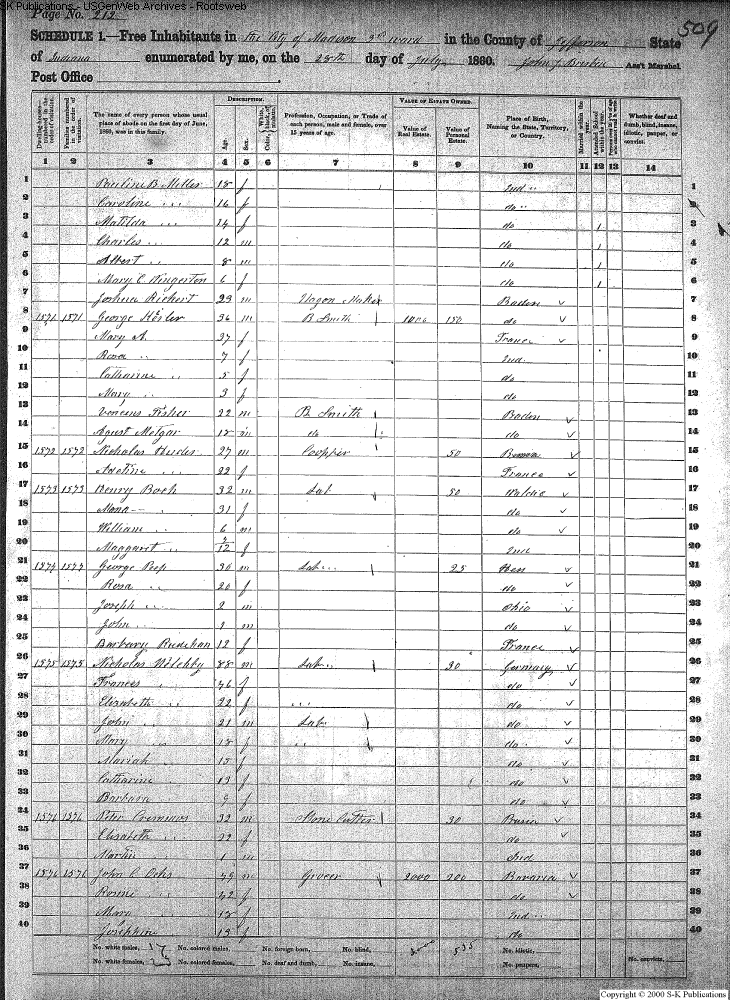 S-K Publications - USGenWeb Archives - Rootsweb
Page No. 212
509
SCHEDULE 1.—Free Inhabitants in the City of Madison 3rd ward in the County of Jefferson State
of Indiana enumerated by me, on the 28th day of July 1860. John J. Ass't Marshal.
Post Office
Dwelling-houses—numbered in the order of visitation.
Families numbered in the order of visitation.
The name of every person whose usual place of abode on the first day of June, 1860, was in this family.
DESCRIPTION.
Age.
Sex.
Color, White, black, or mulatto.
Profession, Occupation, or Trade of each person, male and female, over 15 years of age.
VALUE OF ESTATE OWNED.
Value of Real Estate.
Value of Personal Estate.
Place of Birth, Naming the State, Territory, or Country.
Married within the year.
Attended School within the year.
Whether deaf and dumb, blind, insane, idiotic, pauper, or convict.
1 2 3 4 5 6 7 8 9 10 11 12 13 14
1 Pauline B. Miller 18 f Ind 1
2 Caroline 16 f do 2
3 Matilda 14 f do 1 3
4 Charles 12 m do 1 4
5 Albert 8 m do 1 5
6 Mary C. Wingerton 6 f do 1 6
7 Joshua Richert 23 m Wagon Maker Baden 7
8 1571 1571 George Hosler 36 m B Smith 1000 150 do 8
9 Mary A. 37 f France 9
10 Rosa 7 f Ind 10
11 Catharine 5 f do 11
12 Mary 3 f do 12
13 Fisher 22 m B Smith Baden 13
14 Agust Metgar 18 m do do 14
15 1572 1572 Nicholas 27 m Coopper 50 15
16 22 f France 16
17 1573 1573 Henry Boch 32 m Lab 50 17
18 31 f do 18
19 William 6 m do 19
20 Maggaret 7/12 f Ind 20
21 1574 George 30 m Lab 25 Hess 21
22 Rosa 20 f do 22
23 Joseph 2 m Ohio 23
24 John m do 24
25 Barbary 12 f France 25
26 1575 1575 Nicholas m Lab 30 Germany 26
27 Frances 46 f do 27
28 Elizabeth 22 f do 28
29 John 21 m Lab do 29
30 Mary 18 f do 30
31 Mariah 15 f do 31
32 Catharine 13 f do 32
33 Barbara 9 f do 33
34 1576 1576 Peter 32 m Stone Cutter 30 34
35 Elizabeth 22 f do 35
36 Martin 1 m Ind 36
37 1576 1576 John C. Ochs m Grocer 2000 200 Bavaria 37
38 42 f do 38
39 Mary 18 f Ind 39
40 Josephine 13 f do 40
No. white males, 17 No. colored males, No. foreign born, No. blind, 535 No. idiotic,
No. white females, 23 No. colored females, No. deaf and dumb, No. insane, No. paupers, No. convicts,
Copyright © 2000 S-K Publications